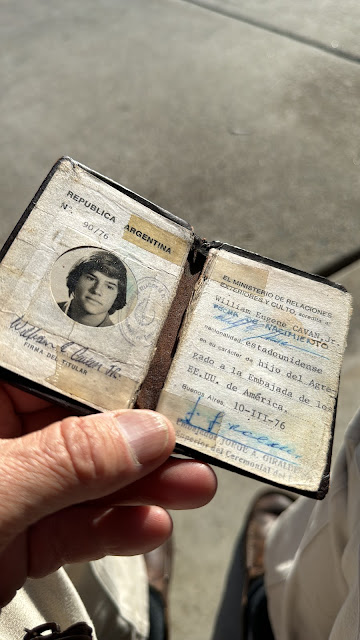 REPUBLICA ARGENTINA
N°. 90/76
FIRMA DEL TITULAR
EL MINISTERIO DE RELACIONES
EXTERIORES Y CULTO, acredita a
William Eugene CAVAN Jr.
nacionalidad estadounidense
en su carácter de hijo del Agre-
gado a la Embajada de los
EE.UU. de América.
Buenos Aires 10-III-76
JORGE A. GIRALDES
del Ceremonial del